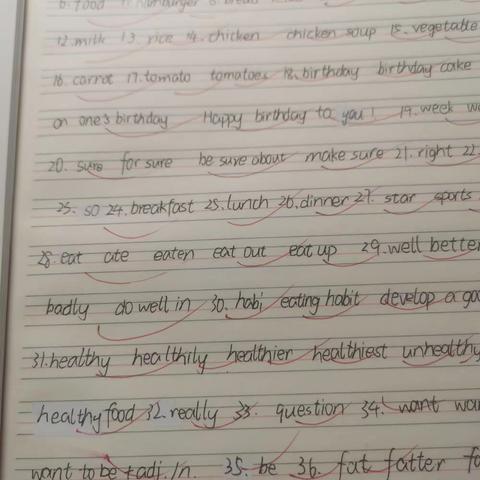 6. food 11. hamburger 8. bread
12. milk 13. rice 14. chicken chicken soup 15. vegetable
16. carrot 17. tomato tomatoes 18. birthday birthday cake
on one's birthday Happy birthday to you! 19. week
20. sure for sure be sure about make sure 21. right 22.
23. so 24. breakfast 25. lunch 26. dinner 27. star sports
28. eat ate eaten eat out eat up 29. well better
badly do well in 30. habi eating habit develop a
31. healthy healthily healthier healthiest unhealthy
healthy food 32. really 33. question 34. want
want to be + adj. / n. 35. be 36. fat fatter